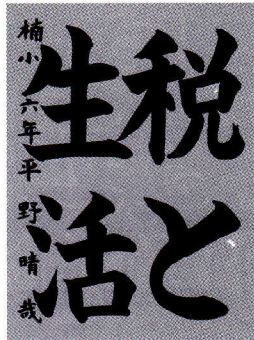 税と
生活
楠小 六年 平野晴哉